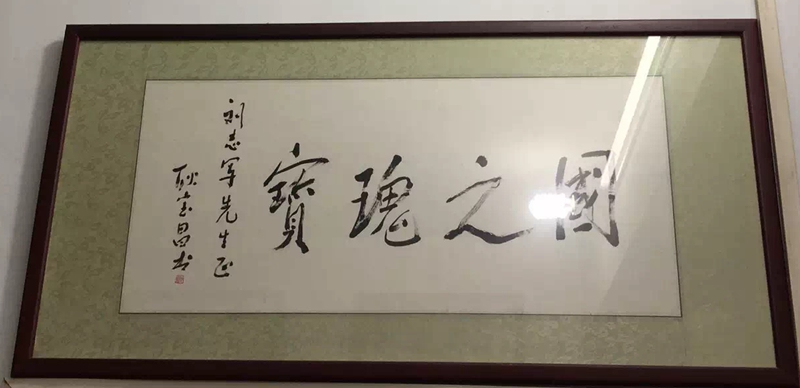 國之瑰寶
刘志军先生正
耿宝昌书